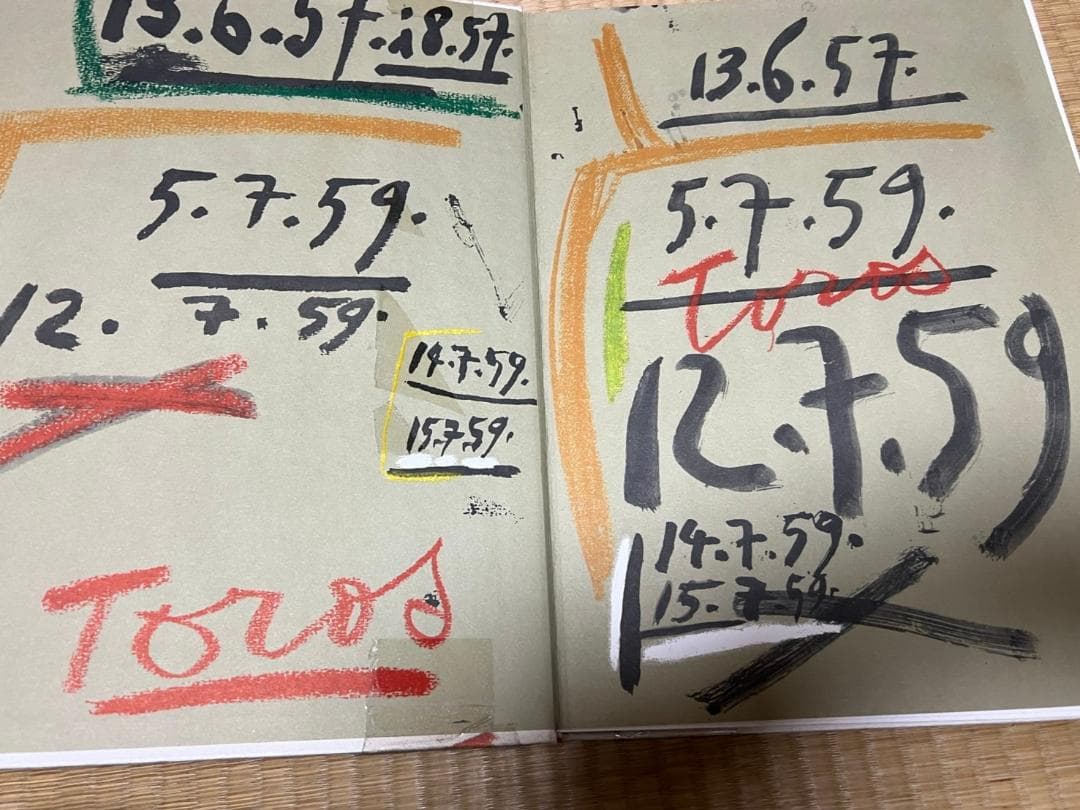 13.6.57.18.57.
5.7.59.
12. 7.59.
14.7.59.
15.7.59.
Toros
13.6.57.
5.7.59.
Toros
12.7.59
14.7.59.
15.7.59.